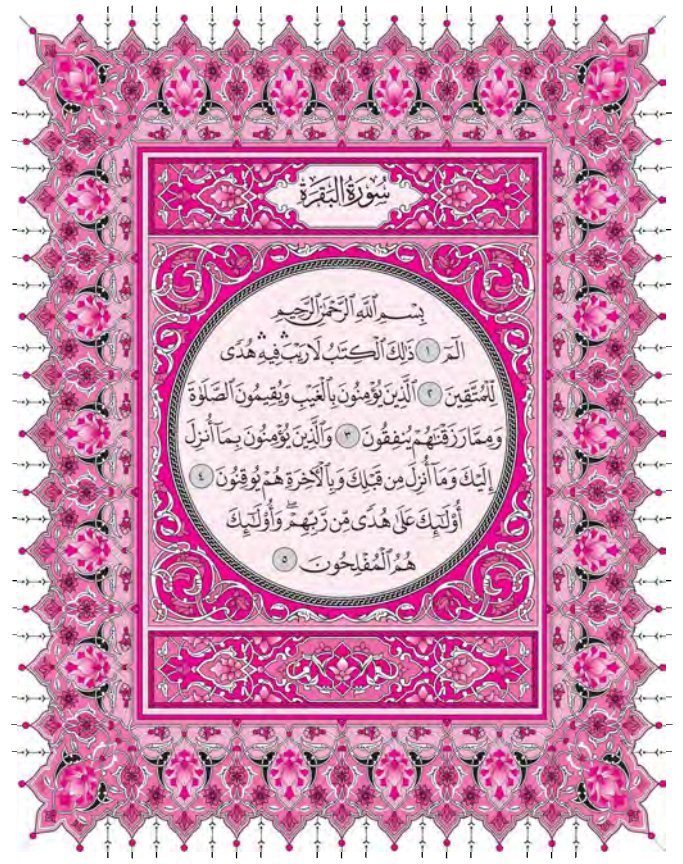 سُورَةُ البَقَرَةِ
بِسْمِ ٱللَّهِ ٱلرَّحْمَٰنِ ٱلرَّحِيمِ
الٓمٓ ١ ذَٰلِكَ ٱلْكِتَٰبُ لَا رَيْبَۛ فِيهِۛ هُدًى
لِّلْمُتَّقِينَ ٢ ٱلَّذِينَ يُؤْمِنُونَ بِٱلْغَيْبِ وَيُقِيمُونَ ٱلصَّلَوٰةَ
وَمِمَّا رَزَقْنَٰهُمْ يُنفِقُونَ ٣ وَٱلَّذِينَ يُؤْمِنُونَ بِمَآ أُنزِلَ
إِلَيْكَ وَمَآ أُنزِلَ مِن قَبْلِكَ وَبِٱلْأَخِرَةِ هُمْ يُوقِنُونَ ٤
أُو۟لَٰٓئِكَ عَلَىٰ هُدًى مِّن رَّبِّهِمْۖ وَأُو۟لَٰٓئِكَ
هُمُ ٱلْمُفْلِحُونَ ٥